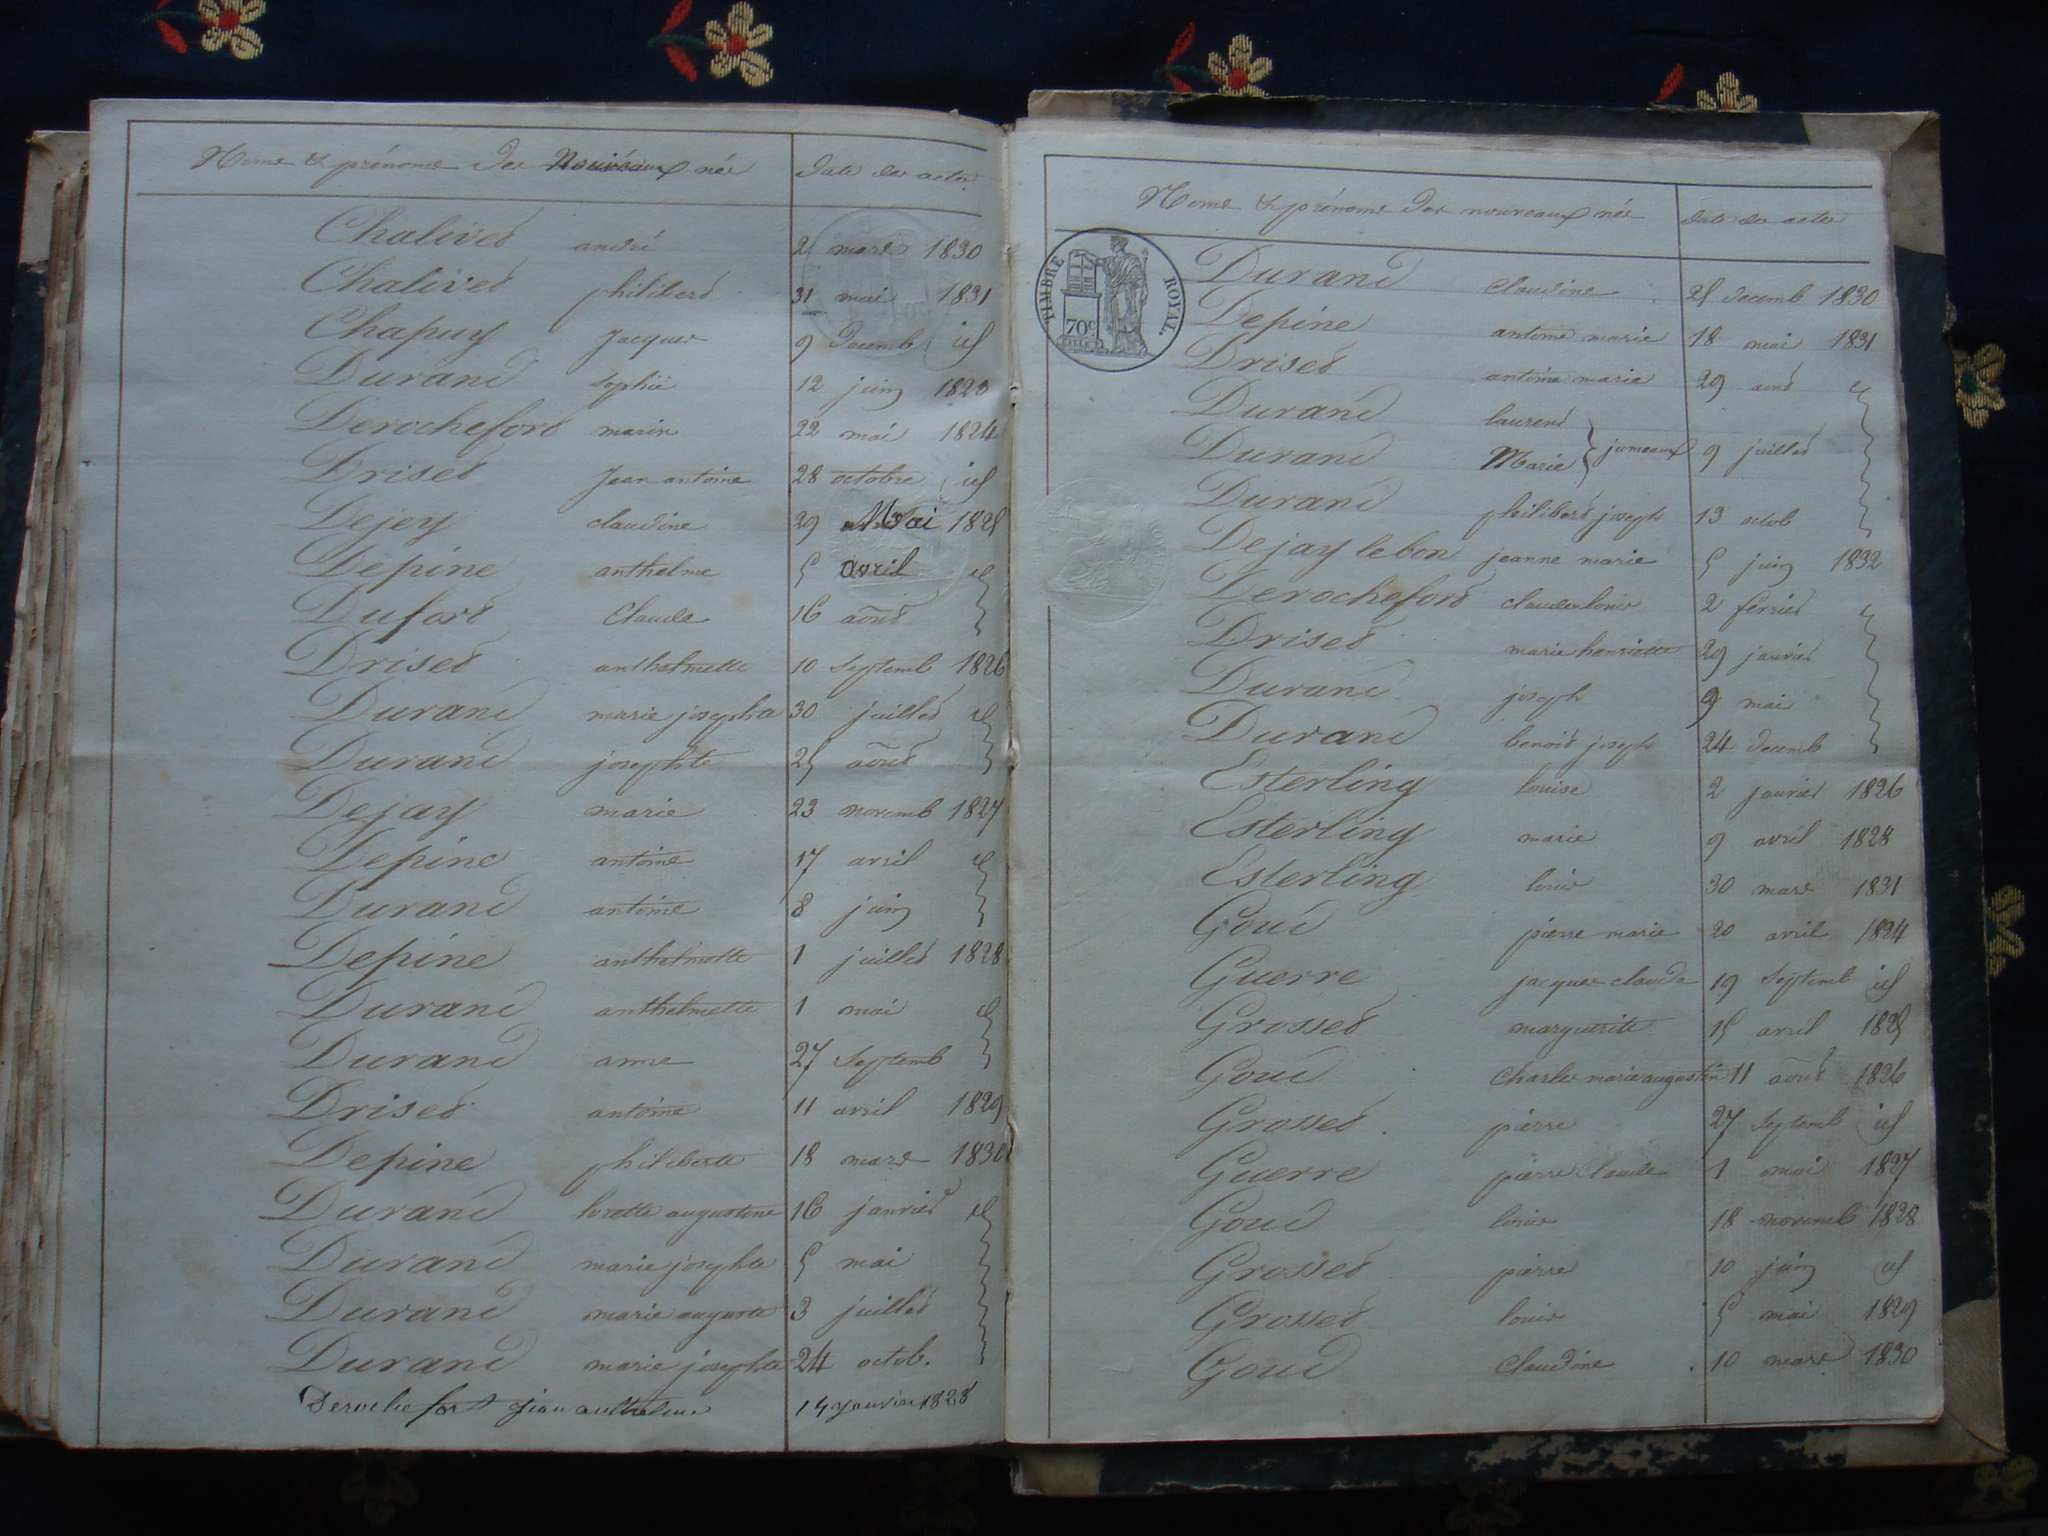 Noms & prénoms des Nouveaux nés Date des actes
Chalivet andré 2 mars 1830
Chalivet philibert 31 mai 1831
Chapuy Jacques 9 decemb id
Durand sophie 12 juin 1823
Derochefort marin 22 mai 1824
Driset Jean antoine 28 octobre id
Dejey claudine 29 Mai 1825
Depine anthelme 5 avril id
Dufort Claude 16 août
Driset anthelmette 10 Septemb 1826
Durand marie josephte 30 juillet id
Durand josephte 25 août
Dejay marie 23 novemb 1827
Depine antoine 17 avril id
Durand antoine 8 juin
Depine anthelmette 1 juillet 1828
Durand anthelmette 1 mai id
Durand anne 27 Septemb
Driset antoine 11 avril 1829
Depine philiberte 18 mars 1830
Durand augustine 16 janvier id
Durand marie josephte 5 mai
Durand marie auguste 3 juillet
Durand marie josephte 24 octob.
Derochefort jean anthelme 14 janvier 1828
Noms & prénoms des nouveaux nés date des actes
TIMBRE ROYAL.
70c
Durand claudine 25 decemb 1830
Depine antoine marie 18 mai 1831
Driset antoine marie 29 août id
Durand laurent
Durand Marie } jumeaux 9 juillet
Durand philibert joseph 13 octob
Dejay lebon jeanne marie 5 juin 1832
Derochefort claude louis 2 fevrier id
Driset marie henriette 29 janvier
Durand joseph 9 mai
Durand benoit joseph 24 decemb
Esterling louise 2 janvier 1826
Esterling marie 9 avril 1828
Esterling louis 30 mars 1831
Goud pierre marie 20 avril 1824
Guerre jacques claude 19 Septemb id
Grosset marguerite 15 avril 1825
Goud Charles marie augustin 11 août 1826
Grosset pierre 27 Septemb id
Guerre pierre claude 1 mai 1827
Goud louis 18 novemb 1828
Grosset pierre 10 juin id
Grosset louis 5 mai 1829
Goud Claudine 10 mars 1830